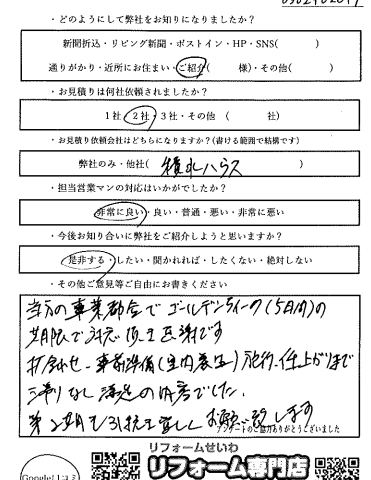 ・どのようにして弊社をお知りになりましたか？
新聞折込・リビング新聞・ポストイン・HP・SNS(　　　)
通りがかり・近所にお住まい・ご紹介(　　　様)・その他(　　　)
・お見積りは何社依頼されましたか？
1社・2社・3社・その他　(　　　社)
・お見積り依頼会社はどちらになりますか？(書ける範囲で結構です)
弊社のみ・他社(　積水ハウス　)
・担当営業マンの対応はいかがでしたか？
非常に良い・良い・普通・悪い・非常に悪い
・今後お知り合いに弊社をご紹介しようと思いますか？
是非する・したい・聞かれれば・したくない・絶対しない
・その他ご意見等ご自由にお書きください
当方の事業都合でゴールデンウィーク(5日間)の
期限で対応頂き感謝です
打合わせ、事前準備(室内養生)施行、仕上がりまで
滞りなし 満足の内容でした。
第2期も引続き宜しくお願い致します
アンケートのご協力ありがとうございました
リフォームせいわ
リフォーム専門店
Google口コミ